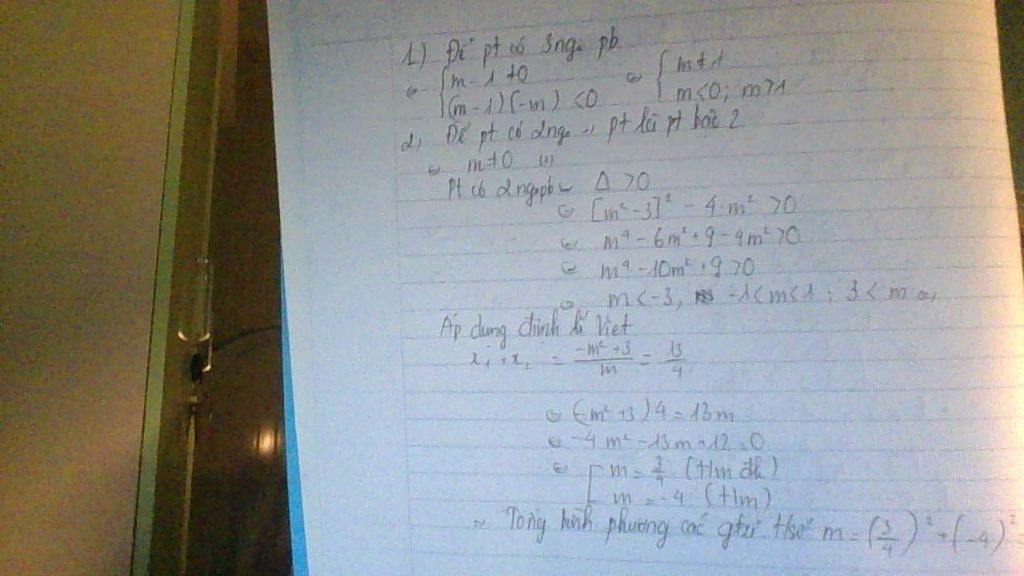 1) Để pt có 3 ngo pb
⇔ { m - 1 ≠ 0 ⇔ { m ≠ 1
(m - 1)(-m) < 0 m < 0 ; m > 1
2, Để pt có 2 ngo pt là pt bậc 2
⇔ m ≠ 0 (1)
Pt có 2 ngo pb ⇔ Δ > 0
⇔ [m² - 3]² - 4·m² > 0
⇔ m⁴ - 6m² + 9 - 4m² > 0
⇔ m⁴ - 10m² + 9 > 0
⇔ m < -3, -1 < m < 1 ; 3 < m
Áp dụng định lí Viet
x₁ + x₂ = (-m² + 3)/m = 13/4
⇔ (-m² + 3) 4 = 13m
⇔ -4m² - 13m + 12 = 0
⇔ [ m = 3/4 (t/m đk)
m = -4 (t/m)
⇒ Tổng bình phương các gtrị t/số m = (3/4)² + (-4)² =